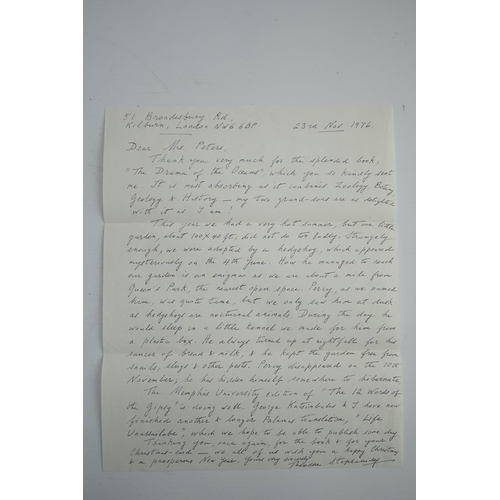 51 Brondesbury Rd,
Kilburn, London NW6 6BP 23rd Nov. 1976.
Dear Mrs Peters,
Thank you very much for the splendid book,
"The Drama of the Oceans" which you so kindly sent
me. It is most absorbing as it combines Zoology, Botany,
Geology & History — my two grand-sons are as delighted
with it as I am!
This year we had a very hot summer, but our little
garden, about 100 X 40 ft, did not do too badly. Strangely
enough, we were adopted by a hedgehog, which appeared
mysteriously on the 4th June. How he managed to reach
our garden is an enigma as we are about a mile from
Queen's Park, the nearest open space. Percy, as we named
him, was quite tame, but we only saw him at dusk
as hedgehogs are nocturnal animals. During the day he
would sleep in a little kennel we made for him from
a plastic box. He always turned up at nightfall for his
saucer of bread & milk, & he kept the garden free from
snails, slugs & other pests. Percy disappeared on the 10th
November; he has hidden himself somewhere to hibernate.
The Memphis University edition of "The 12 Words of
the Gipsy" is doing well. George Katsimbalis & I have now
finished another & longer Palamas translation, "Life
Unassailable", which we hope to be able to publish some day.
Thanking you, once again, for the book & for your
Christmas-card — we all of us wish you a happy Christmas
& a prosperous New Year, Yours very sincerely
Theodore Stephanides